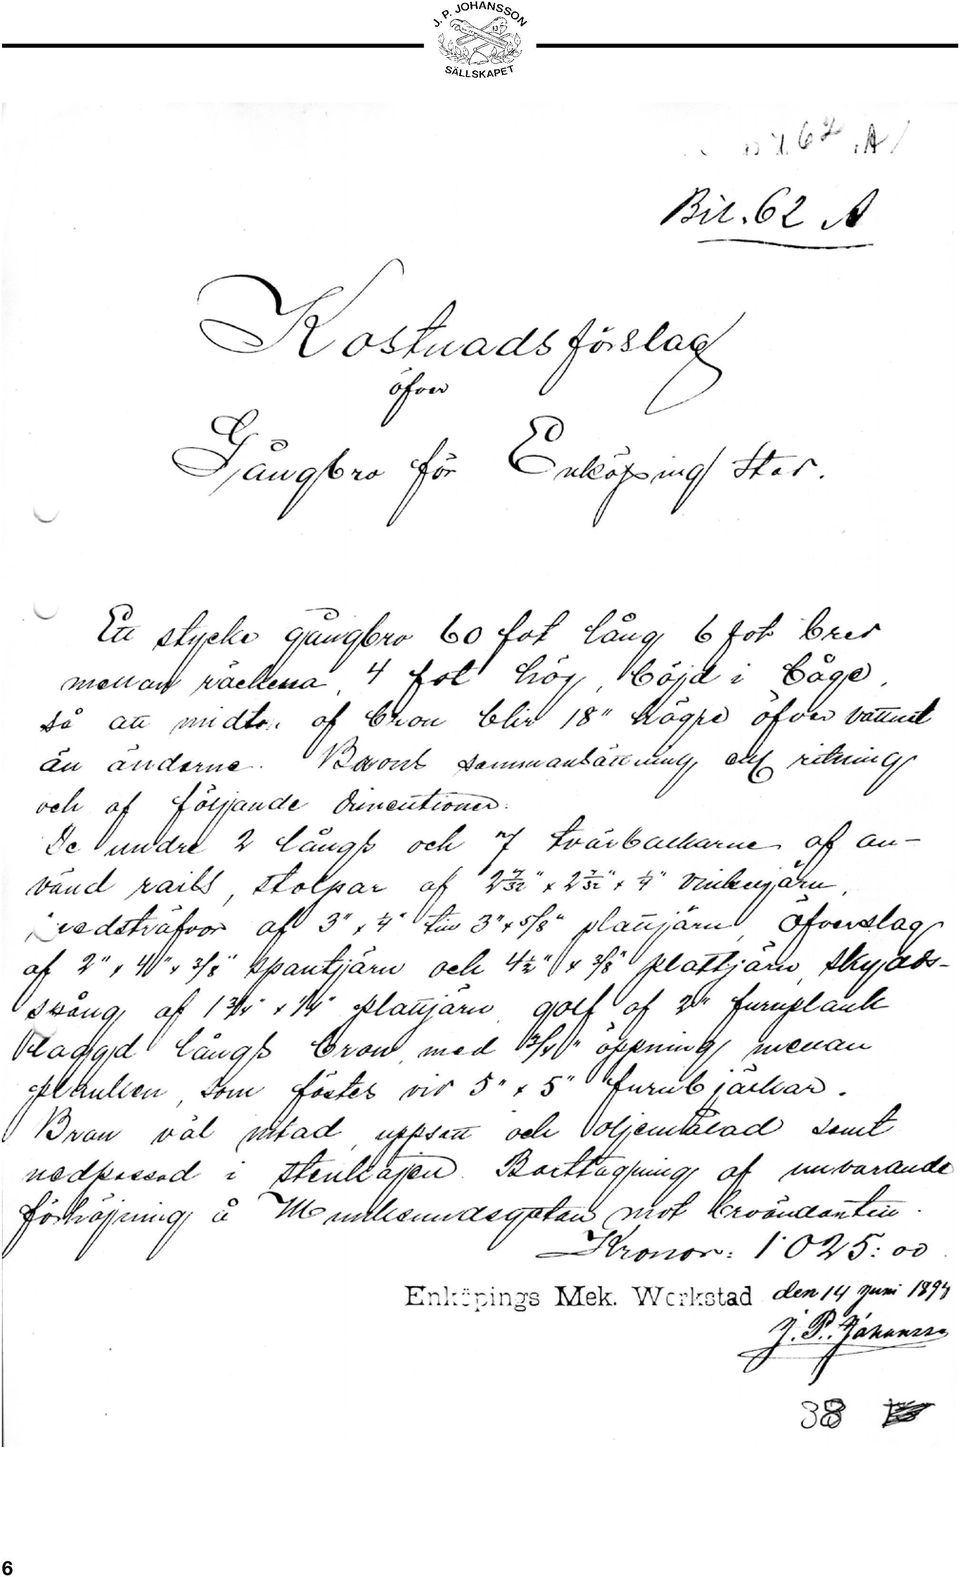 J. P. JOHANSSON
SÄLLSKAPET
62 A
Bil. 62 A
Kostnadsförslag
öfver
Gångbro för Enköping Stad.
Ett stycke gångbro 60 fot lång 6 fot bred
mellan räckena, 4 fot hög, böjd i båge,
så att midten af bron blir 18" högre öfver vattnet
än änderna. Brons sammansättning enl ritning
och af följande dimentioner.
De undre 2 långs och 7 tvärbalkarne af an-
vänd rails, stolpar af 2 7/32" x 2 7/32" x 1/4" vinkeljärn,
af 3" x 1/4" 3" x 5/8" plattjärn Öfverslag
af 2" x 4" x 3/8" spantjärn och 4 1/2" x 3/8" plattjärn, skydds-
stång af 1 3/4" x 1/4" plattjärn golf af 2" furuplank
lagd långs bron med 3/4" öppning mellan
planken, som fästes vid 5" x 5" furubjälkar.
Bron väl nitad, uppsatt och oljemålad samt
nedpassad i stenkajen. Borttagning af nuvarande
förhöjning å Munksundsgatan mot broändan
Kronor: 1025: 00
Enköpings Mek. Werkstad den 14 Juni 1894
J. P. Johansson
38
6